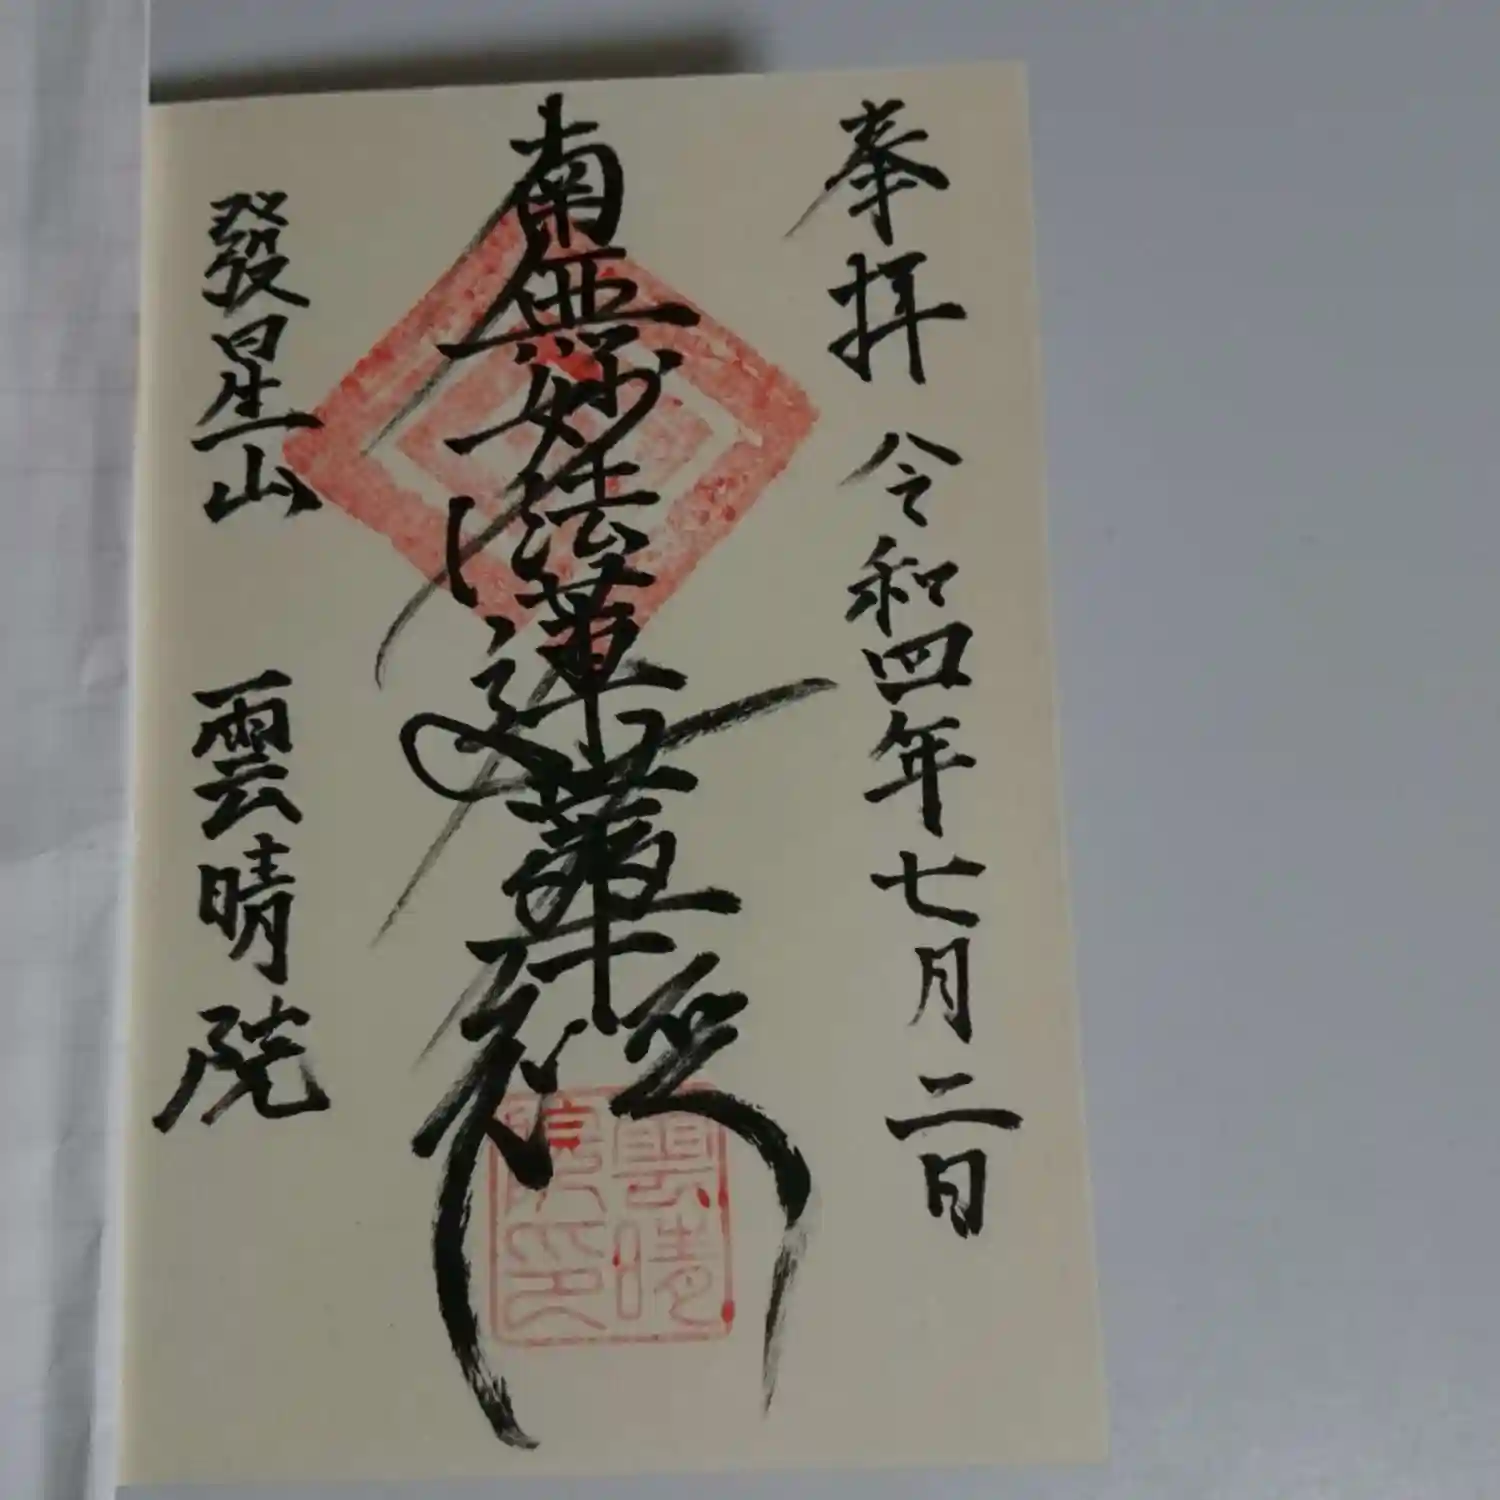 奉拝 令和四年七月二日
南無妙法蓮華経
發星山 雲晴院
雲晴
院印